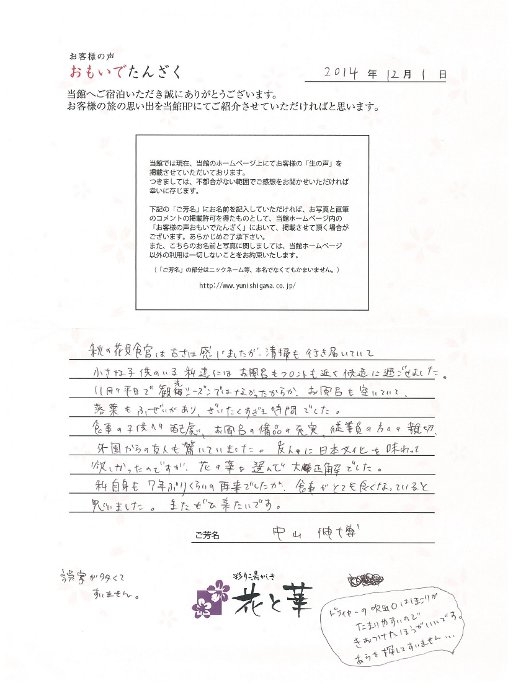 お客様の声
おもいでたんざく
2014 年 12 月 1 日
当館へご宿泊いただき誠にありがとうございます。
お客様の旅の思い出を当館HPにてご紹介させていただければと思います。
当館では現在、当館のホームページ上にてお客様の「生の声」を
掲載させていただいております。
つきましては、不都合がない範囲でご感想をお聞かせいただければ
幸いに存じます。
下記の「ご芳名」にお名前を記入していただければ、お写真と直筆
のコメントの掲載許可を得たものとして、当館ホームページ内の
「お客様の声おもいでたんざく」において、掲載させて頂く場合が
ございます。あらかじめご了承下さい。
また、こちらのお名前と写真に関しましては、当館ホームページ
以外の利用は一切しないことをお約束いたします。
(「ご芳名」の部分はニックネーム等、本名でなくてもかまいません。)
http://www.yunishigawa.co.jp/
は古さは感じましたが、清掃も行き届いていて
小さな子供のいる私達にはお風呂もフロントも近く快適に過ごせました。
11月の平日で観光シーズンではなかったからか、お風呂も空いていて、
落葉もふぜいがあり、ぜいたくすぎる時間でした。
食事の子供への配慮、お風呂の備品の充実、従業員の方々の親切、
外国からの友人も驚いていました。友人に日本文化を味わって
欲しかったのですが、花の華を選んで大正解でした。
私自身も7年ぶりくらいの再来でしたが、食事がとても良くなっていると
思いました。またぜひ来たいです。
ご芳名 中山
誤字が多くて
すいません。
彩り湯かしき
花と華
ドライヤーの吹出口はほこりが
たまりやすいので
きをつけたほうがいいです。
あらを探してすいません…